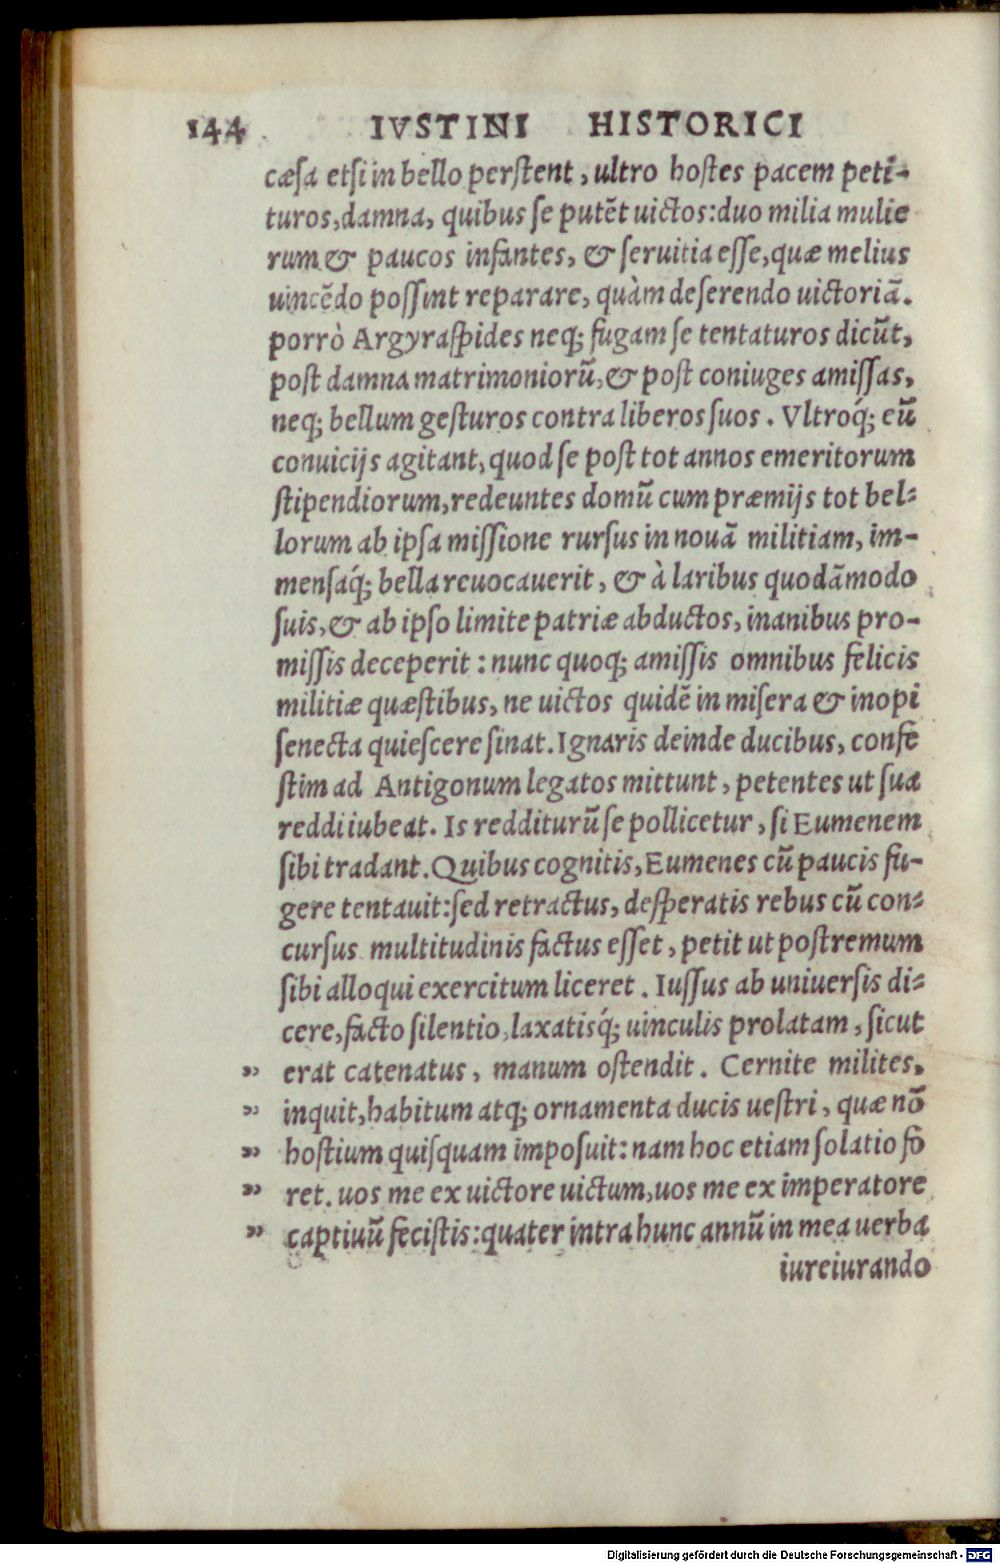 144 IVSTINI HISTORICI
cæsa etsi in bello perstent, ultro hostes pacem peti-
turos, damna, quibus se putēt uictos: duo milia mulie
rum & paucos infantes, & seruitia esse, quæ melius
uincēdo possint reparare, quàm deserendo uictoriā.
porrò Argyraspides neq; fugam se tentaturos dicūt,
post damna matrimoniorū, & post coniuges amissas,
neq; bellum gesturos contra liberos suos. Vltroq́; eū
conuicijs agitant, quod se post tot annos emeritorum
stipendiorum, redeuntes domū cum præmijs tot bel-
lorum ab ipsa missione rursus in nouā militiam, im-
mensaq́; bella reuocauerit, & à laribus quodāmodo
suis, & ab ipso limite patriæ abductos, inanibus pro-
missis deceperit: nunc quoq; amissis omnibus felicis
militiæ quæstibus, ne uictos quidē in misera & inopi
senecta quiescere sinat. Ignaris deinde ducibus, confe
stim ad Antigonum legatos mittunt, petentes ut sua
reddi iubeat. Is redditurū se pollicetur, si Eumenem
sibi tradant. Quibus cognitis, Eumenes cū paucis fu-
gere tentauit: sed retractus, desperatis rebus cū con-
cursus multitudinis factus esset, petit ut postremum
sibi alloqui exercitum liceret. Iussus ab uniuersis di-
cere, facto silentio, laxatisq́; uinculis prolatam, sicut
" erat catenatus, manum ostendit. Cernite milites,
" inquit, habitum atq; ornamenta ducis uestri, quæ nō
" hostium quisquam imposuit: nam hoc etiam solatio fo
" ret. uos me ex uictore uictum, uos me ex imperatore
" captiuū fecistis: quater intra hunc annū in mea uerba
iureiurando
Digitalisierung gefördert durch die Deutsche Forschungsgemeinschaft - DFG